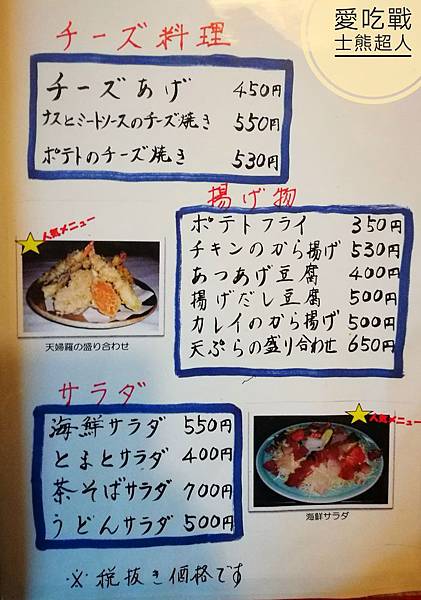 愛吃戰
士熊超人
チーズ料理
チーズあげ 450円
ナスとミートソースのチーズ焼き 550円
ポテトのチーズ焼き 530円
揚げ物
ポテトフライ 350円
チキンのから揚げ 530円
あつあげ豆腐 400円
揚げだし豆腐 500円
カレイのから揚げ 500円
天ぷらの盛り合わせ 650円
人気メニュー
天婦羅の盛り合わせ
サラダ
海鮮サラダ 550円
とまとサラダ 400円
茶そばサラダ 700円
うどんサラダ 500円
人気メニュー
海鮮サラダ
※税抜き価格です